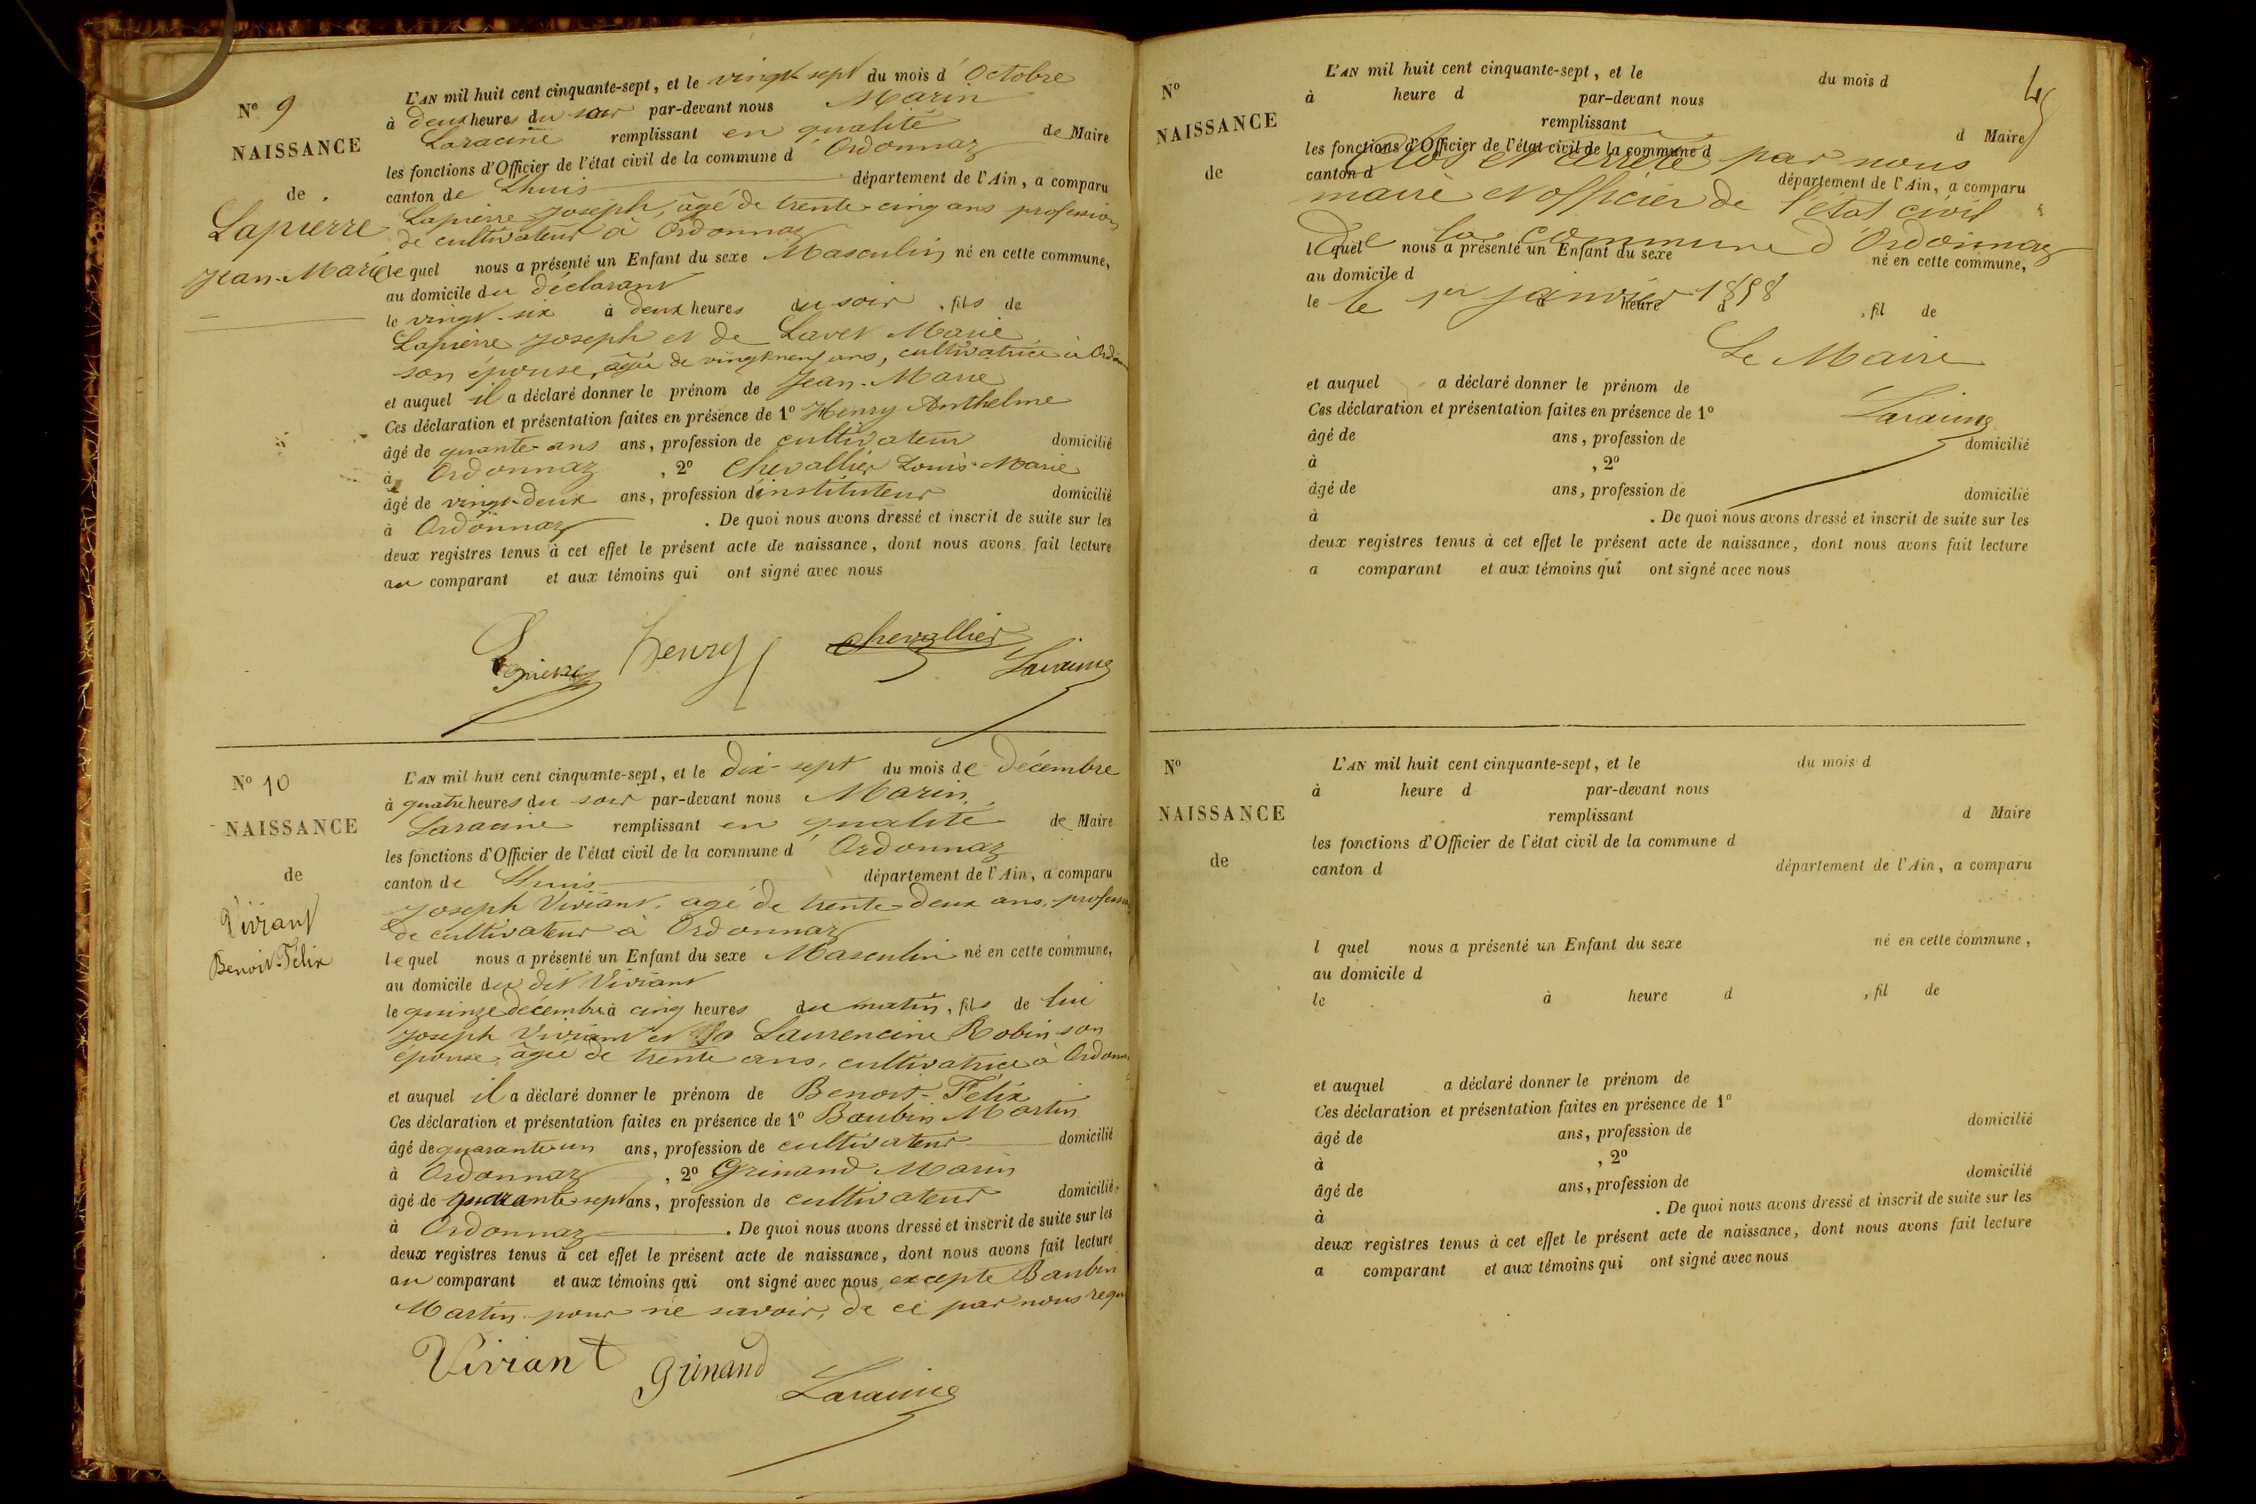 Nº 9
NAISSANCE
de
Lapierre
Jean-Marie
L'AN mil huit cent cinquante-sept, et le vingt sept du mois d'Octobre
à deux heures du soir par-devant nous Marin
Laracine remplissant en qualité de Maire
les fonctions d'Officier de l'état civil de la commune d'Ordonnaz
canton de Lhuis département de l'Ain, a comparu
Lapierre Joseph, âgé de trente-cinq ans profession
de cultivateur à Ordonnaz
lequel nous a présenté un Enfant du sexe Masculin, né en cette commune,
au domicile du déclarant
le vingt-six à deux heures du soir, fils de
Lapierre Joseph et de Lavet Marie
son épouse, âgée de vingtneuf ans, cultivatrice à Ordonn
et auquel il a déclaré donner le prénom de Jean-Marie
Ces déclaration et présentation faites en présence de 1º Henry Anthelme
âgé de quarante-ans ans, profession de cultivateur domicilié
à Ordonnaz, 2º Chevallier Louis-Marie
âgé de vingt-deux ans, profession d'instituteur domicilié
à Ordonnaz. De quoi nous avons dressé et inscrit de suite sur les
deux registres tenus à cet effet le présent acte de naissance, dont nous avons fait lecture
au comparant et aux témoins qui ont signé avec nous
Lapierre henry chevallier Laracine
Nº 10
NAISSANCE
de
Viviant
Benoit-Félix
L'AN mil huit cent cinquante-sept, et le dix-sept du mois de décembre
à quatre heures du soir par-devant nous Marin
Laracine remplissant en qualité de Maire
les fonctions d'Officier de l'état civil de la commune d'Ordonnaz
canton de Lhuis département de l'Ain, a comparu
Joseph Viviant, âgé de trente-deux ans, profession
de cultivateur à Ordonnaz
lequel nous a présenté un Enfant du sexe Masculin né en cette commune,
au domicile du dit Viviant
le quinze décembre à cinq heures du matin, fils de lui
Joseph Viviant et Laurencine Robin son
épouse, âgée de trente ans, cultivatrice à Ordonn
et auquel il a déclaré donner le prénom de Benoit-Félix
Ces déclaration et présentation faites en présence de 1º Baubin Martin
âgé de quarante-un ans, profession de cultivateur domicilié
à Ordonnaz, 2º Grinand Marin
âgé de quarante-sept ans, profession de cultivateur domicilié
à Ordonnaz. De quoi nous avons dressé et inscrit de suite sur les
deux registres tenus à cet effet le présent acte de naissance, dont nous avons fait lecture
au comparant et aux témoins qui ont signé avec nous, excepté Baubin
Martin pour ne savoir, de ce par nous requ
Viviant Grinand Laracine
Nº
NAISSANCE
de
L'AN mil huit cent cinquante-sept, et le du mois d
à heure d par-devant nous
remplissant d Maire
les fonctions d'Officier de l'état civil de la commune d
Clos et arrêté par nous
canton d département de l'Ain, a comparu
maire et officier de l'état civil
de la commune d'Ordonnaz
l quel nous a présenté un Enfant du sexe né en cette commune,
au domicile d
le 1er janvier 1858
le à heure d, fil de
Le Maire
et auquel a déclaré donner le prénom de
Ces déclaration et présentation faites en présence de 1º
Laracine
âgé de ans, profession de domicilié
à , 2º
âgé de ans, profession de domicilié
à . De quoi nous avons dressé et inscrit de suite sur les
deux registres tenus à cet effet le présent acte de naissance, dont nous avons fait lecture
a comparant et aux témoins qui ont signé avec nous
Nº
NAISSANCE
de
L'AN mil huit cent cinquante-sept, et le du mois d
à heure d par-devant nous
remplissant d Maire
les fonctions d'Officier de l'état civil de la commune d
canton d département de l'Ain, a comparu
l quel nous a présenté un Enfant du sexe né en cette commune,
au domicile d
le à heure d , fil de
et auquel a déclaré donner le prénom de
Ces déclaration et présentation faites en présence de 1º
âgé de ans, profession de domicilié
à , 2º
âgé de ans, profession de domicilié
à . De quoi nous avons dressé et inscrit de suite sur les
deux registres tenus à cet effet le présent acte de naissance, dont nous avons fait lecture
a comparant et aux témoins qui ont signé avec nous